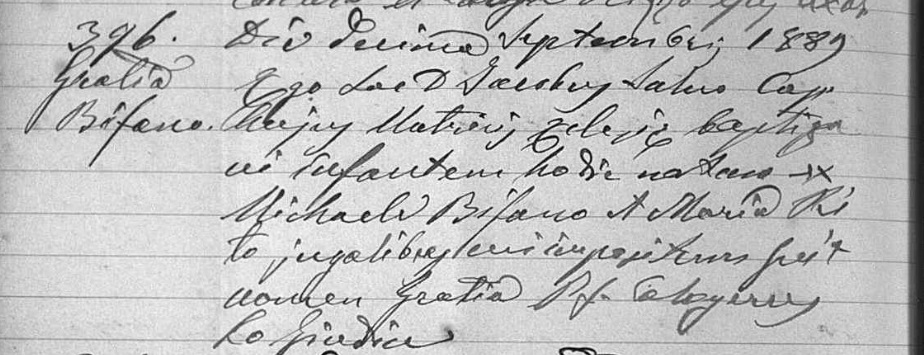 396.
Gratia
Bifano.
Die decima Septembris 1889
Ego Sacd Jacobus Salvo Cap.
hujus Matricis Eclesie baptiza
vi infantem hodie natam ex
Michaele Bifano et Maria Ri
to jugalibus cui impositum fuit
nomen Gratia P. f. Calogerus
Lo Giudice